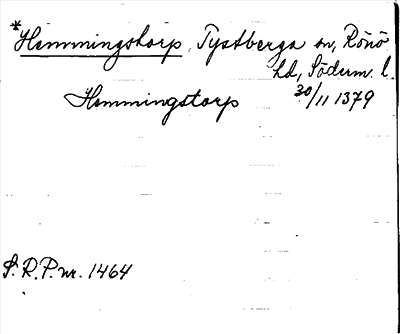 *Hemmingstorp, Tystberga sn, Rönö
hd, Söderm. l.
Hemmingstorp 30/11 1379
S. R. P. nr. 1464